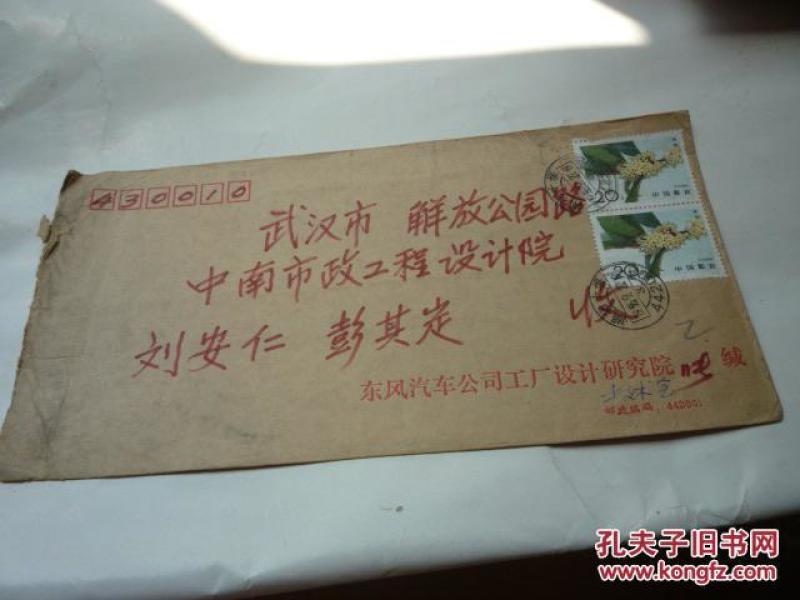 430010
武汉市 解放公园路
中南市政工程设计院
刘安仁 彭其定 收
20
中国邮政
20
中国邮政
442
东风汽车公司工厂设计研究院 缄
邮政编码:
孔夫子旧书网
www.kongfz.com